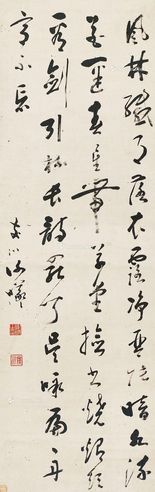 風林纖月落衣露淨琴張暗水流
花徑春星帶草堂檢書燒燭短
看劍引杯長詩罷聞吳咏扁舟
意不忘